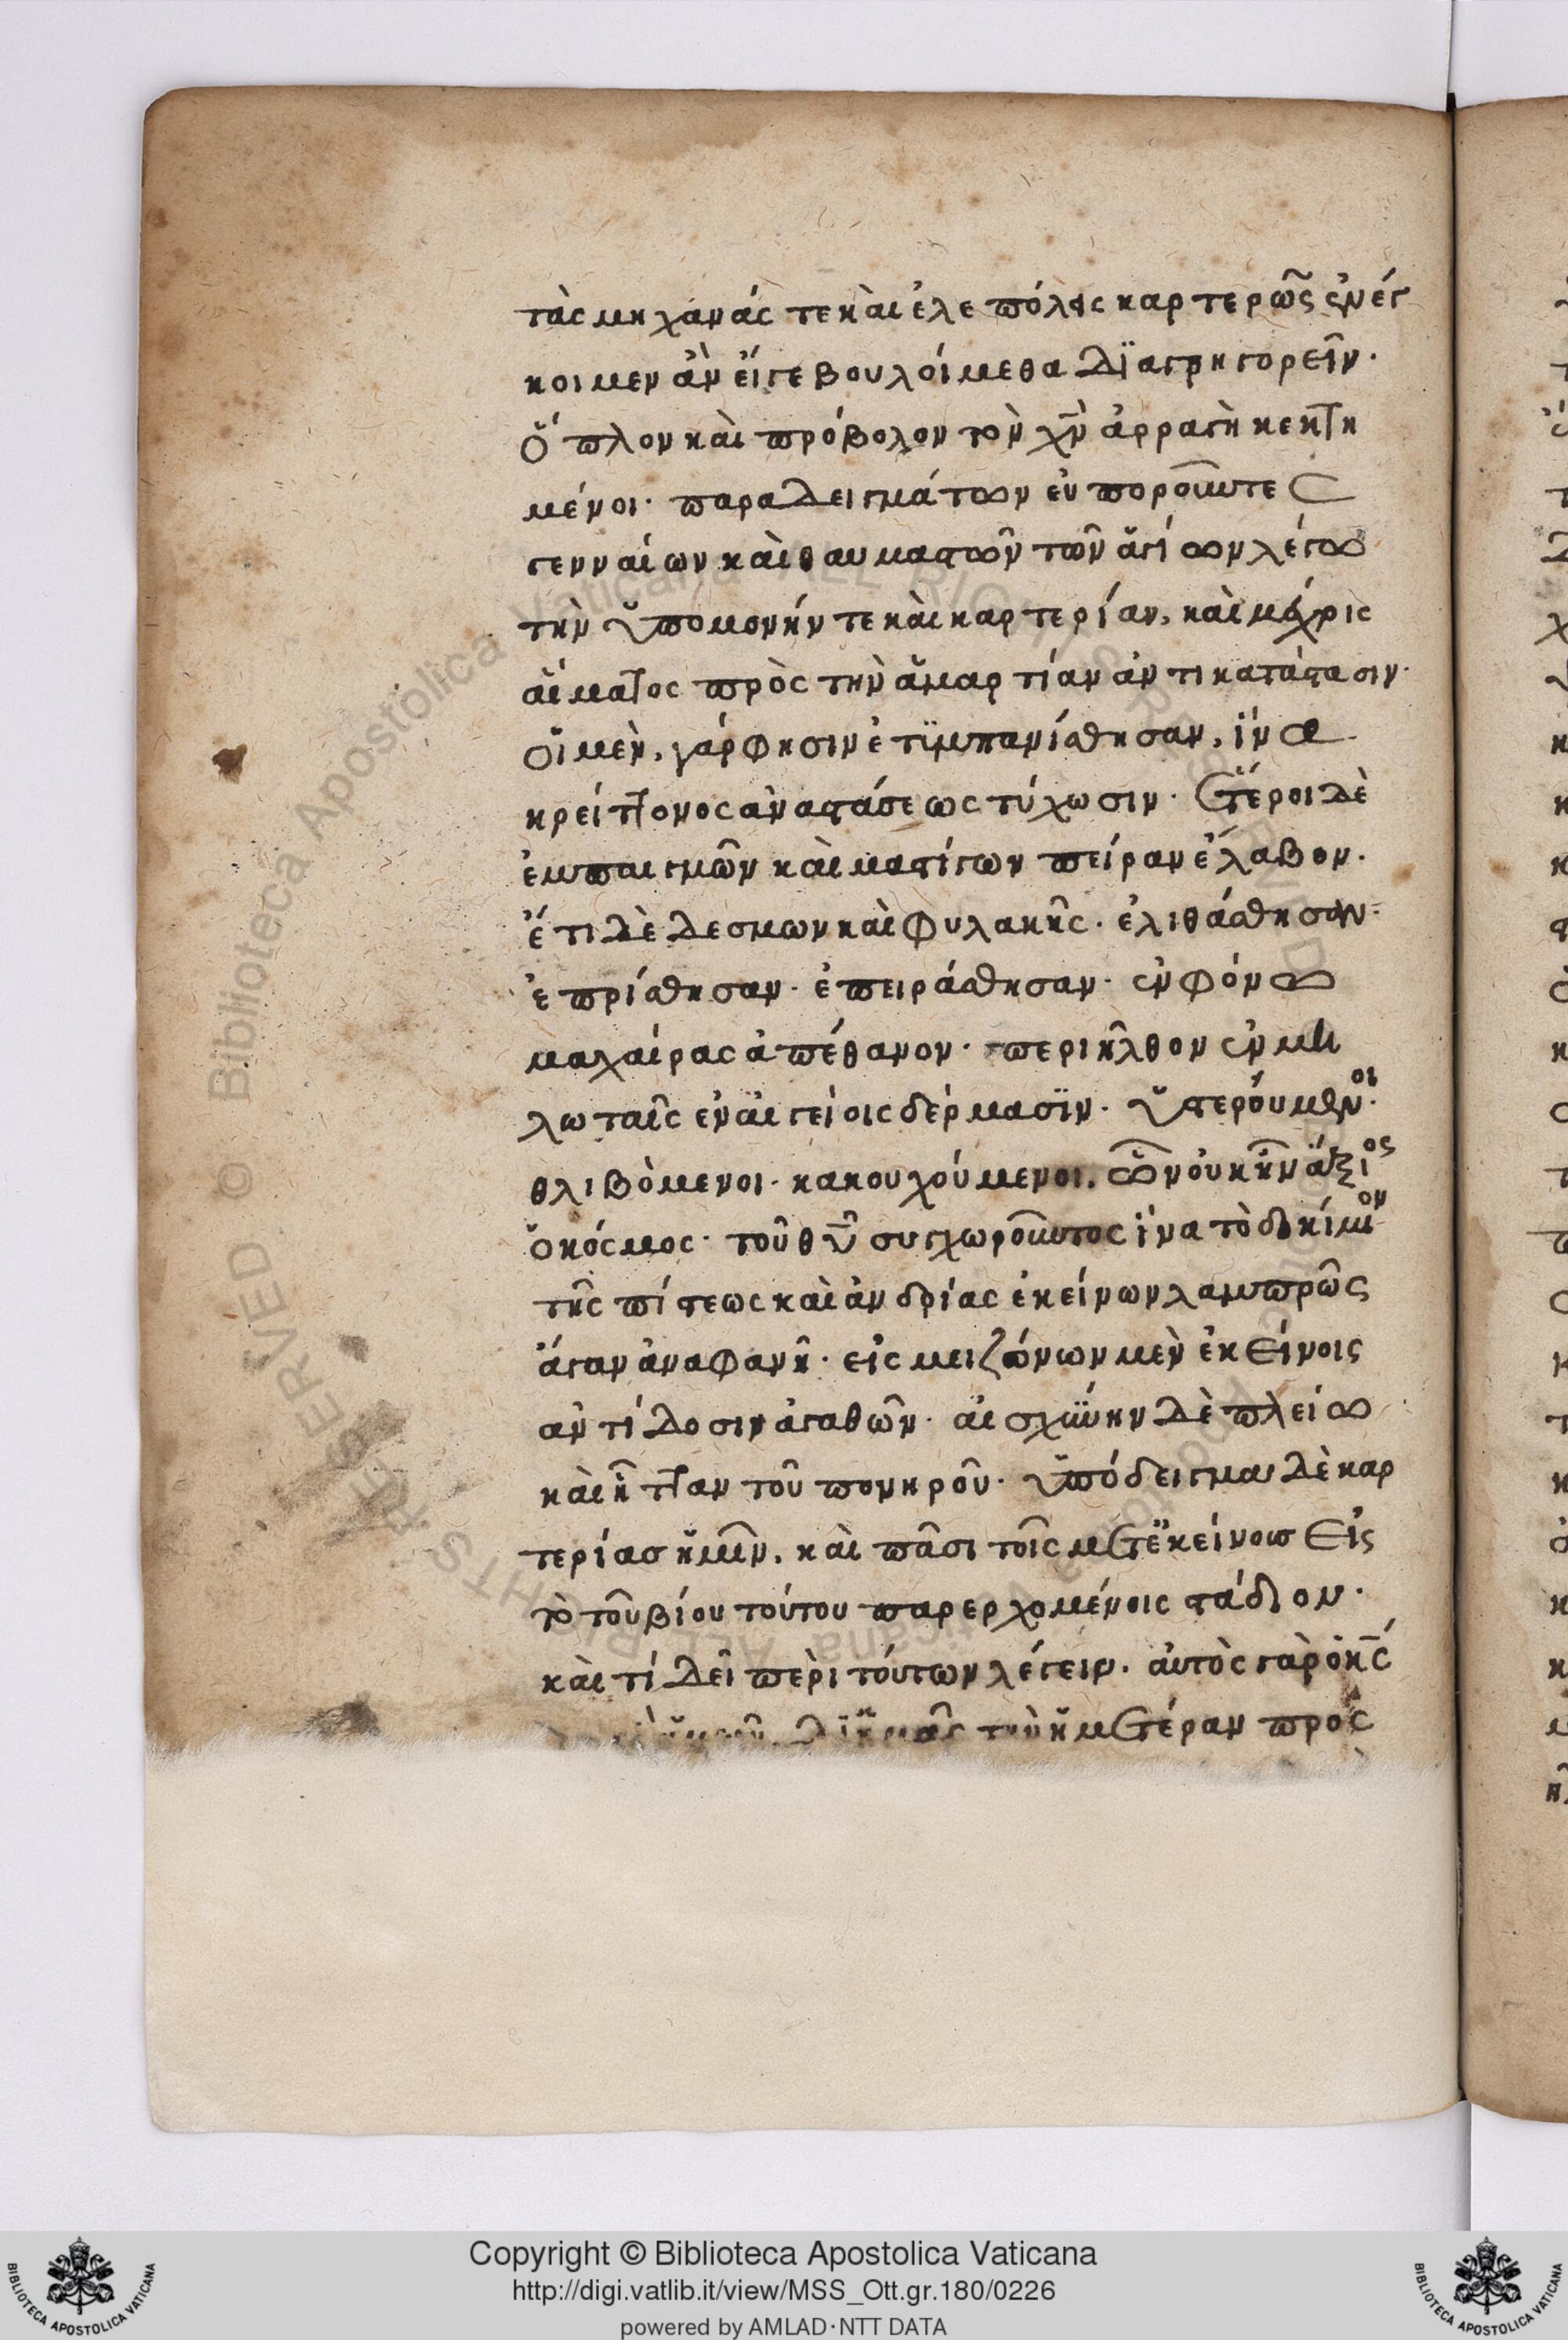 τὰς μηχανάς τε καὶ ἐλεπόλεις καρτερῶς ἐνέγ
κοιμεν ἂν εἴγε βουλοίμεθα διαγρηγορεῖν·
ὅπλον καὶ πρόβολον τὸν χν̅ ἀρραγῆ κεκτη
μένοι· παραδειγμάτων εὐποροῦντες
γενναίων καὶ θαυμαστῶν τῶν ἁγίων λέγω
τὴν ὑπομονήν τε καὶ καρτερίαν, καὶ μέχρις
αἵματος πρὸς τὴν ἁμαρτίαν ἀντικατάστασιν·
οἱ μὲν, γάρ φησιν ἐτυμπανίσθησαν, ἵνα
κρείττονος ἀναστάσεως τύχωσιν· ἕτεροι δὲ
ἐμπαιγμῶν καὶ μαστίγων πείραν ἔλαβον·
ἔτι δὲ δεσμων καὶ φυλακῆς· ἐλιθάσθησαν·
ἐπρίσθησαν· ἐπειράσθησαν· ἐν φόνω
μαχαίρας ἀπέθανον· περιῆλθον ἐν μη
λωταῖς ἐν αἰγείοις δέρμασϊν· ὑστερούμενοι·
θλιβὸμενοι· κακουχούμενοι. ὧν οὐκ ἦν ἄξιος
ὁ κόσμος· τοῦ θυ̅ συγχωροῦντος ἵνα τὸ δοκίμιον
τῆς πίστεως καὶ ἀνδρίας ἐκείνων λαμπρῶς
ἄγαν ἀναφανῆ· εἰς μειζόνων μὲν ἐκείνοις
ἀντίδοσιν ἀγαθῶν· αἰσχύνην δὲ πλείω
καὶ ἧτταν τοῦ πονηροῦ· ὑπόδειγμα δὲ καρ
τερίας ἡμῖν, καὶ πᾶσι τοῖς μετ' ἐκείνοις εἰς
τὸ τοῦ βίου τούτου παρερχομένοις στάδιον·
καὶ τί δεῖ περὶ τούτων λέγειν· αὐτὸς γὰρ ὁ κς̅
ἡμῶν, δι' ἡμᾶς τὴν ἡμετέραν πρὸς
Copyright © Biblioteca Apostolica Vaticana
http://digi.vatlib.it/view/MSS_Ott.gr.180/0226
powered by AMLAD·NTT DATA